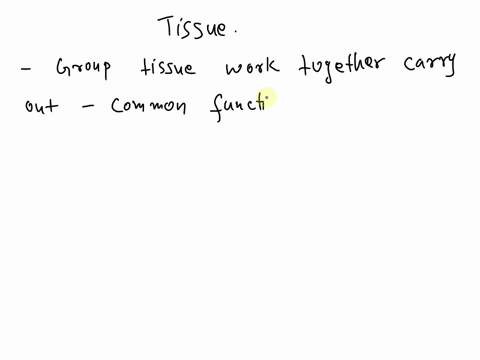 Tissue.
- Group tissue work together carry
out - common functi